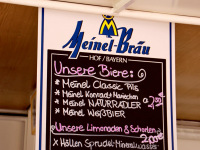 Meinel-Bräu
HOF / BAYERN
Unsere Biere:
* Meinel Classic Pils
* Meinel Konrad+Mariechen
* Meinel NATURRADLER
* Meinel Weißbier
Unsere Limonaden & Schorlen
* Höllen Sprudel-Mineralwasser